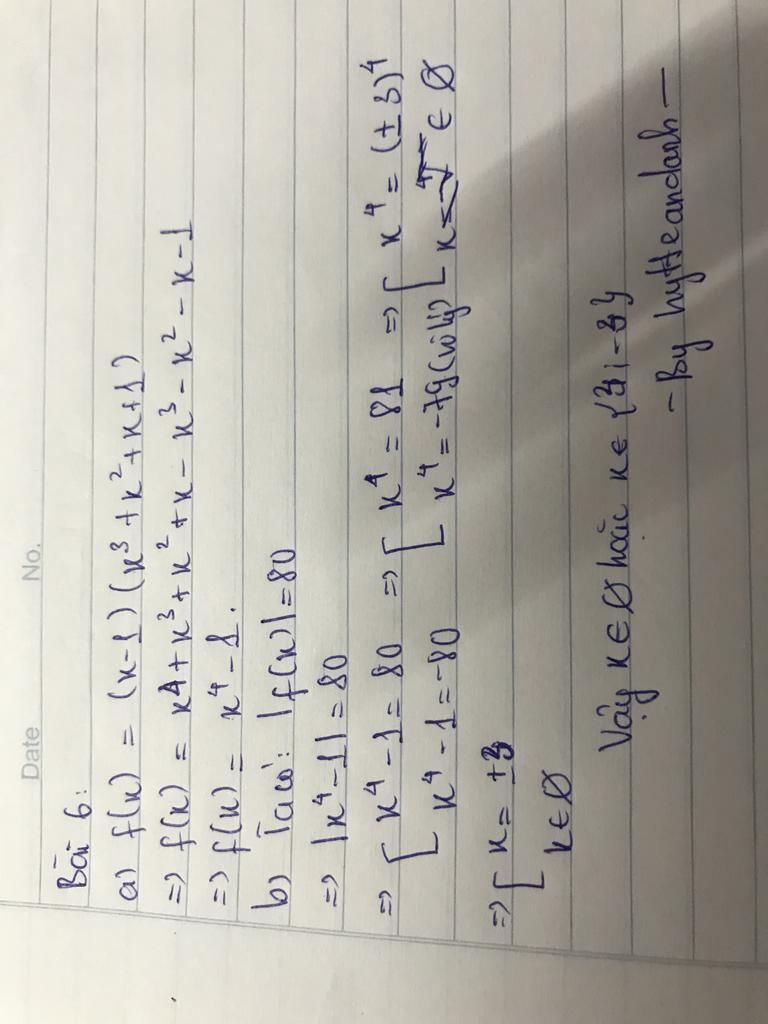 Date No.
Bài 6:
a) f(x) = (x-1)(x³+x²+x+1)
=> f(x) = x⁴+x³+x²+x-x³-x²-x-1
=> f(x) = x⁴-1.
b) Ta có: |f(x)|=80
=> |x⁴-1|=80
=> [ x⁴-1=80 => [ x⁴=81 => [ x⁴=(±3)⁴
x⁴-1=-80 x⁴=-79(vô lý) x ∈ Ø
=> [ x=±3
x∈Ø
Vậy x∈Ø hoặc x∈{3;-3}
- By hytteandanh -